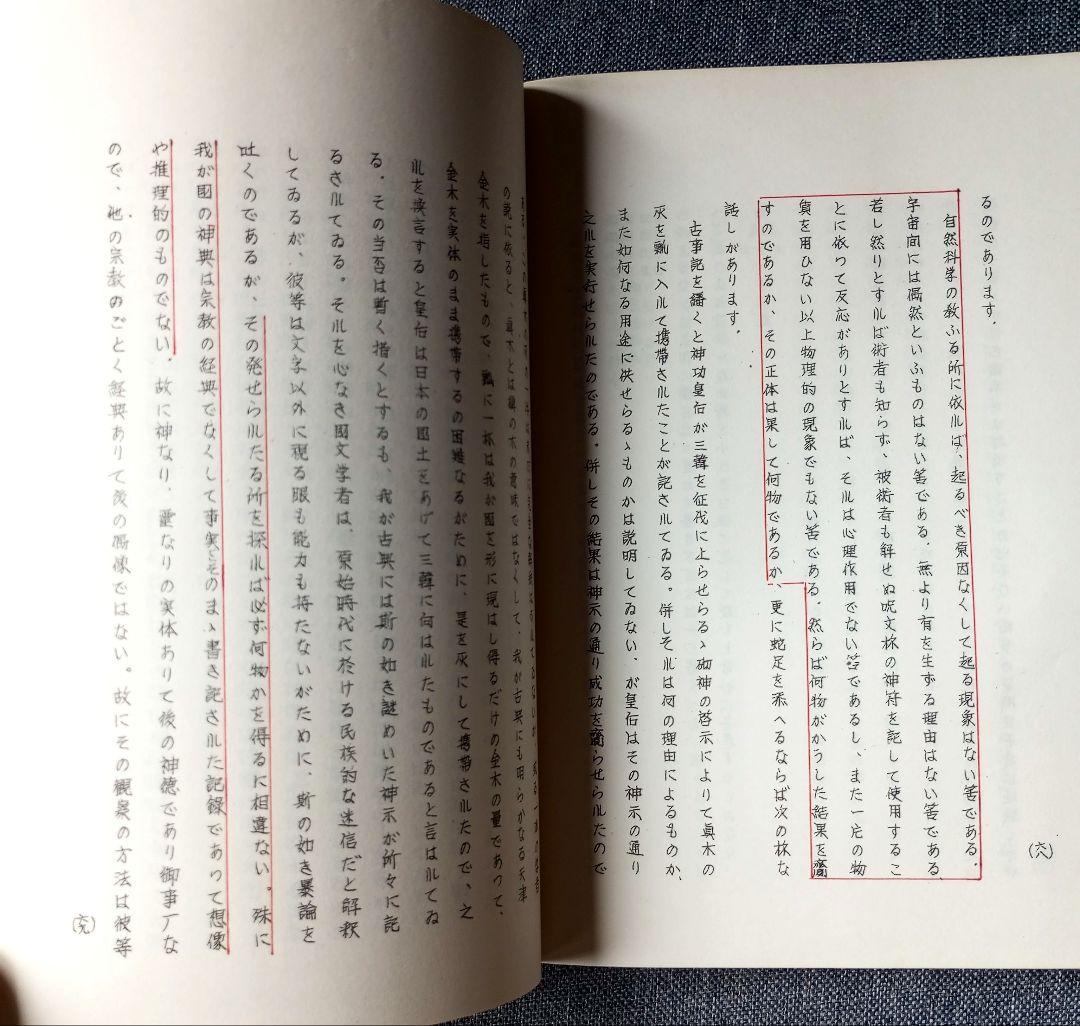 るのであります．
自然科学の教ふる所に依れば、起るべき原因なくして起る現象はない筈である．
宇宙間には偶然といふものはない筈である．無より有を生ずる理由はない筈である、
若し然りとすれば術者も知らず、被術者も解せぬ呪文様の神符を記して使用するこ
とに依つて反応がありとすれば、それは心理作用でない筈であるし、また一定の物
質を用ひない以上物理的の現象でもない筈である．然らば何物がかうした結果を齎
すのであるか、その正体は果して何物であるか、更に蛇足を添へるならば次の様な
話しがあります．
古事記を繙くと神功皇后が三韓を征伐に上らせらるゝ砌神の啓示によりて真木の
灰を瓢に入れて携帯されたことが記されてゐる。併しそれは何の理由によるものか、
また如何なる用途に供せらるゝものかは説明してゐない、が皇后はその神示の通り
之れを実行せられたのである．併しその結果は神示の通り成功を齎らせられたので
（六八）
の説に依ると、真木とは
の木の意味ではなくして、我が古典にも明らかなる天津
金木を指したもので、瓢に一杯は我が国を形に現はし得るだけの金木の量であつて、
金木を実体のまま携帯するの困難なるがために、是を灰にして携帯されたので、之
れを換言すると皇后は日本の国土をあげて三韓に向はれたものであると言はれてゐ
る．その当否は暫く措くとするも、我が古典には斯の如き謎めいた神示が所々に記
るされてゐる。それを心なき国文学者は、原始時代に於ける民族的な迷信だと解釈
してゐるが、彼等は文字以外に視る眼も能力も持たないがために、斯の如き暴論を
吐くのであるが、その発せられたる所を探れば必ず何物かを得るに相違ない。殊に
我が国の神典は宗教の経典でなくして事実をそのまゝ書き記された記録であつて想像
や推理的のものでない．故に神なり、霊なりの実体ありて後の神徳であり御事厂な
ので、他の宗教のごとく経典ありて後の偶像ではない。故にその観察の方法は彼等
（六九）